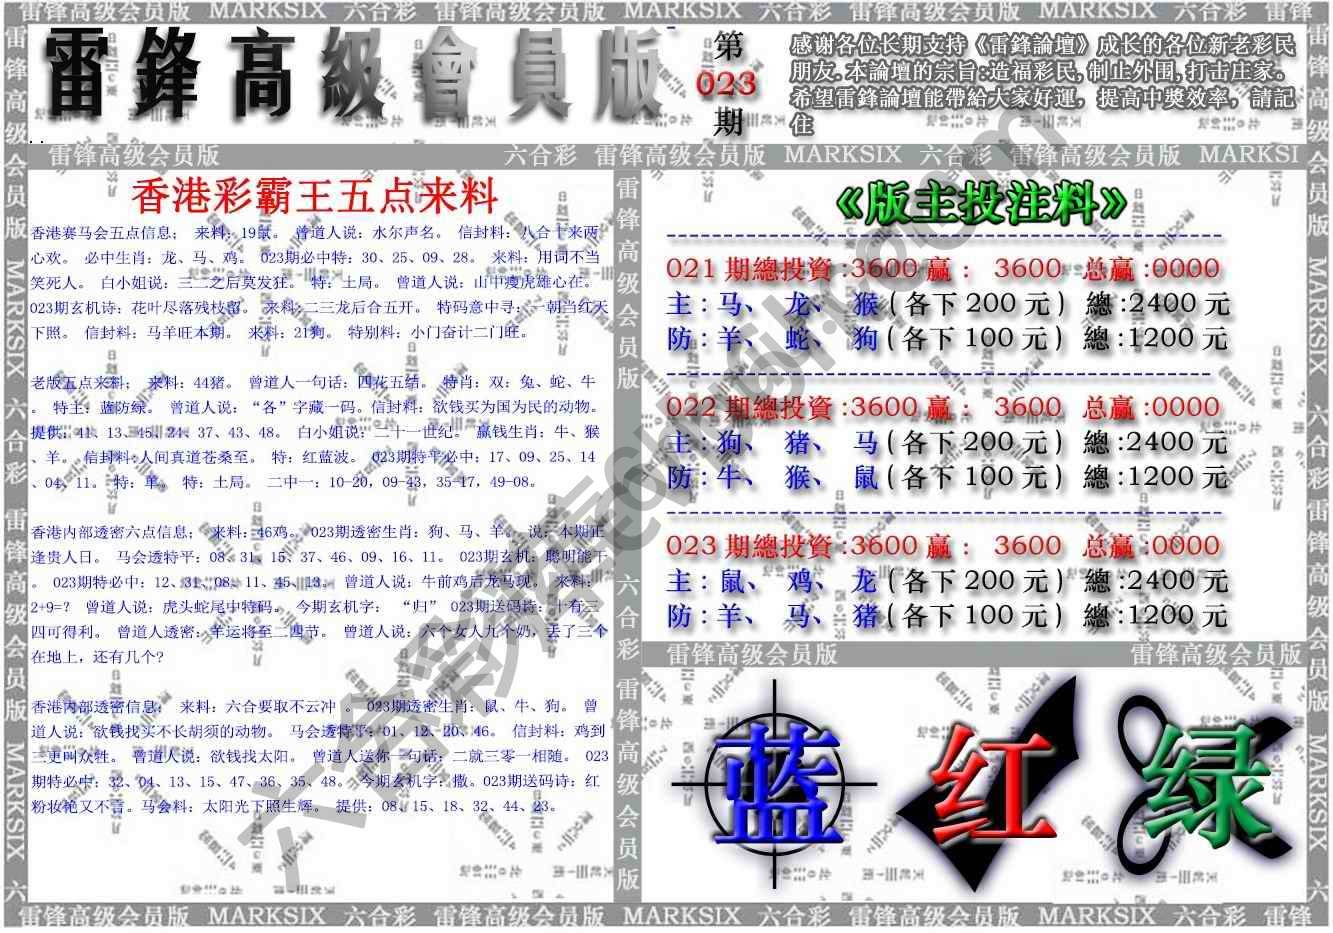 雷锋高级会员版 MARKSIX 六合彩 雷锋高级会员版 MARKSIX 六合彩 雷锋高级会员版 MARKSIX 六合彩 雷锋
雷鋒高級會員版
第
023
期
感谢各位长期支持《雷鋒論壇》成长的各位新老彩民
朋友.本論壇的宗旨:造福彩民,制止外围,打击庄家。
希望雷鋒論壇能帶給大家好運，提高中獎效率，請記
住
雷锋高级会员版 六合彩 雷锋高级会员版 MARKSIX 六合彩 雷锋高级会员版 MARKSI
香港彩霸王五点来料
香港赛马会五点信息； 来料：19鼠。 曾道人说：水尔声名。 信封料：八合十来两
心欢。 必中生肖：龙、马、鸡。 023期必中特：30、25、09、28。 来料：用词不当
笑死人。 白小姐说：三二之后莫发狂。 特：土局。 曾道人说：山中瘦虎雄心在。
023期玄机诗：花叶尽落残枝留。 来料:二三龙后合五开。 特码意中寻：一朝当红天
下照。 信封料：马羊旺本期。 来料：21狗。 特别料：小门奋计二门旺。
老版五点来料； 来料：44猪。 曾道人一句话：四花五结。 特肖：双：兔、蛇、牛
。 特主：蓝防绿。 曾道人说：“各”字藏一码。信封料：欲钱买为国为民的动物。
提供：41、13、45、24、37、43、48。 白小姐说：二十一世纪。 赢钱生肖：牛、猴
、羊。 信封料:人间真道苍桑至。 特：红蓝波。 023期特平必中：17、09、25、14
、04、11。 特：单。 特：土局。 二中一：10-20，09-43，35-17，49-08。
香港内部透密六点信息； 来料：46鸡。 023期透密生肖：狗、马、羊。 说：本期正
逢贵人日。 马会透特平：08、31、15、37、46、09、16、11。 023期玄机：聪明能干
。 023期特必中：12、31、08、11、45、13。 曾道人说：牛前鸡后龙马现。 来料：
2+9=？ 曾道人说：虎头蛇尾中特码。 今期玄机字： “归” 023期送码诗：十有三
四可得利。 曾道人透密：羊运将至二四节。 曾道人说：六个女人九个奶，丢了三个
在地上，还有几个?
香港内部透密信息； 来料：六合要取不云冲 。 023期透密生肖：鼠、牛、狗。 曾
道人说：欲钱找买不长胡须的动物。 马会透特平：01、12、20、46。 信封料：鸡到
三更叫众牲。 曾道人说：欲钱找太阳。 曾道人送你一句话：二就三零一相随。 023
期特必中：32、04、13、15、47、36、35、48。 今期玄机字：撒。023期送码诗：红
粉妆艳又不言。马会料：太阳光下照生辉。 提供：08、15、18、32、44、23。
《版主投注料》
021 期總投資:3600 赢： 3600 总赢:0000
主：马、 龙、 猴(各下 200 元) 總:2400 元
防:羊、 蛇、 狗(各下 100 元) 總:1200 元
022 期總投資:3600 赢： 3600 总赢:0000
主：狗、 猪、 马(各下 200 元) 總:2400 元
防:牛、 猴、 鼠(各下 100 元) 總:1200 元
023 期總投資:3600 赢： 3600 总赢:0000
主：鼠、 鸡、 龙(各下 200 元) 總:2400 元
防:羊、 马、 猪(各下 100 元) 總:1200 元
雷锋高级会员版 雷锋高级会员版
蓝 红 绿
雷锋高级会员版 MARKSIX 六合彩 雷锋高级会员版 MARKSIX 六合彩 雷锋高级会员版 MARKSIX 六合彩 雷锋